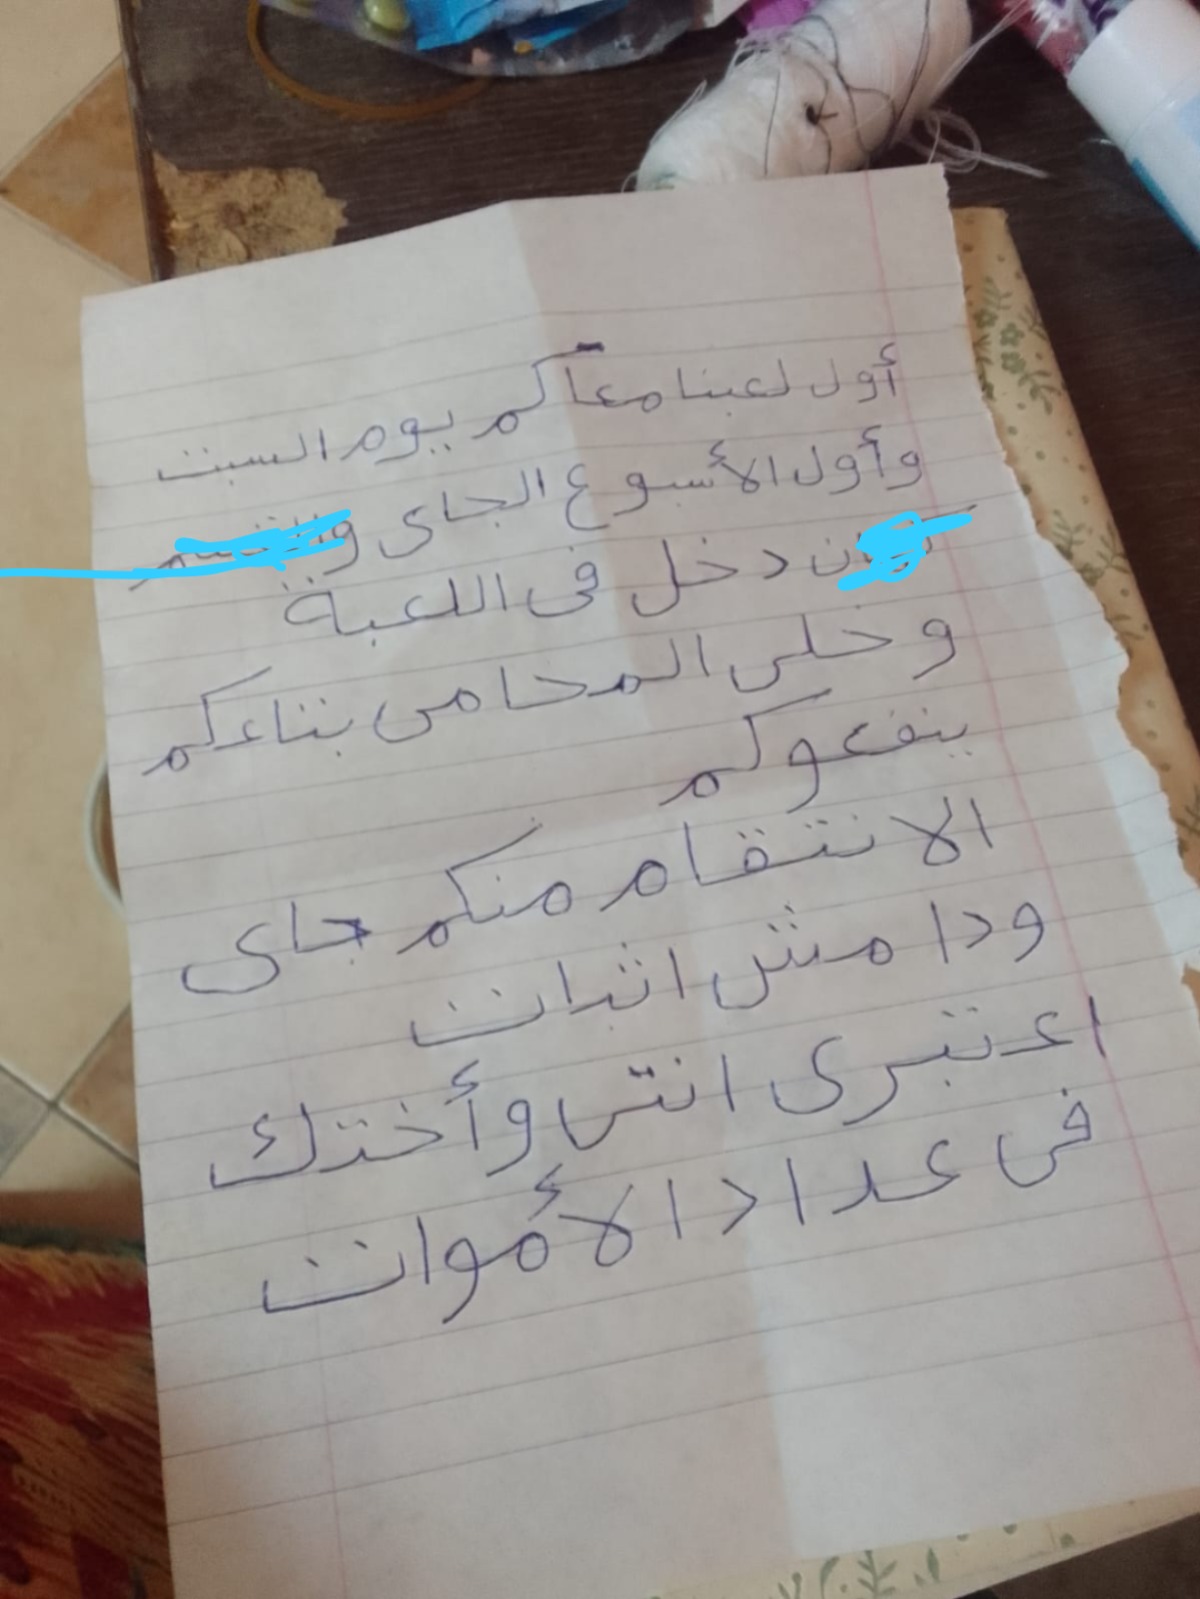 أول لعبنا معاكم يوم السبت
وأول الأسبوع الجاى
دخل فى اللعبة
وخلى المحامى بتاعكم
ينفعوكم
الانتقام منكم جاى
ودا مش اثبات
اعتبرى انتى وأختك
فى عداد الأموات